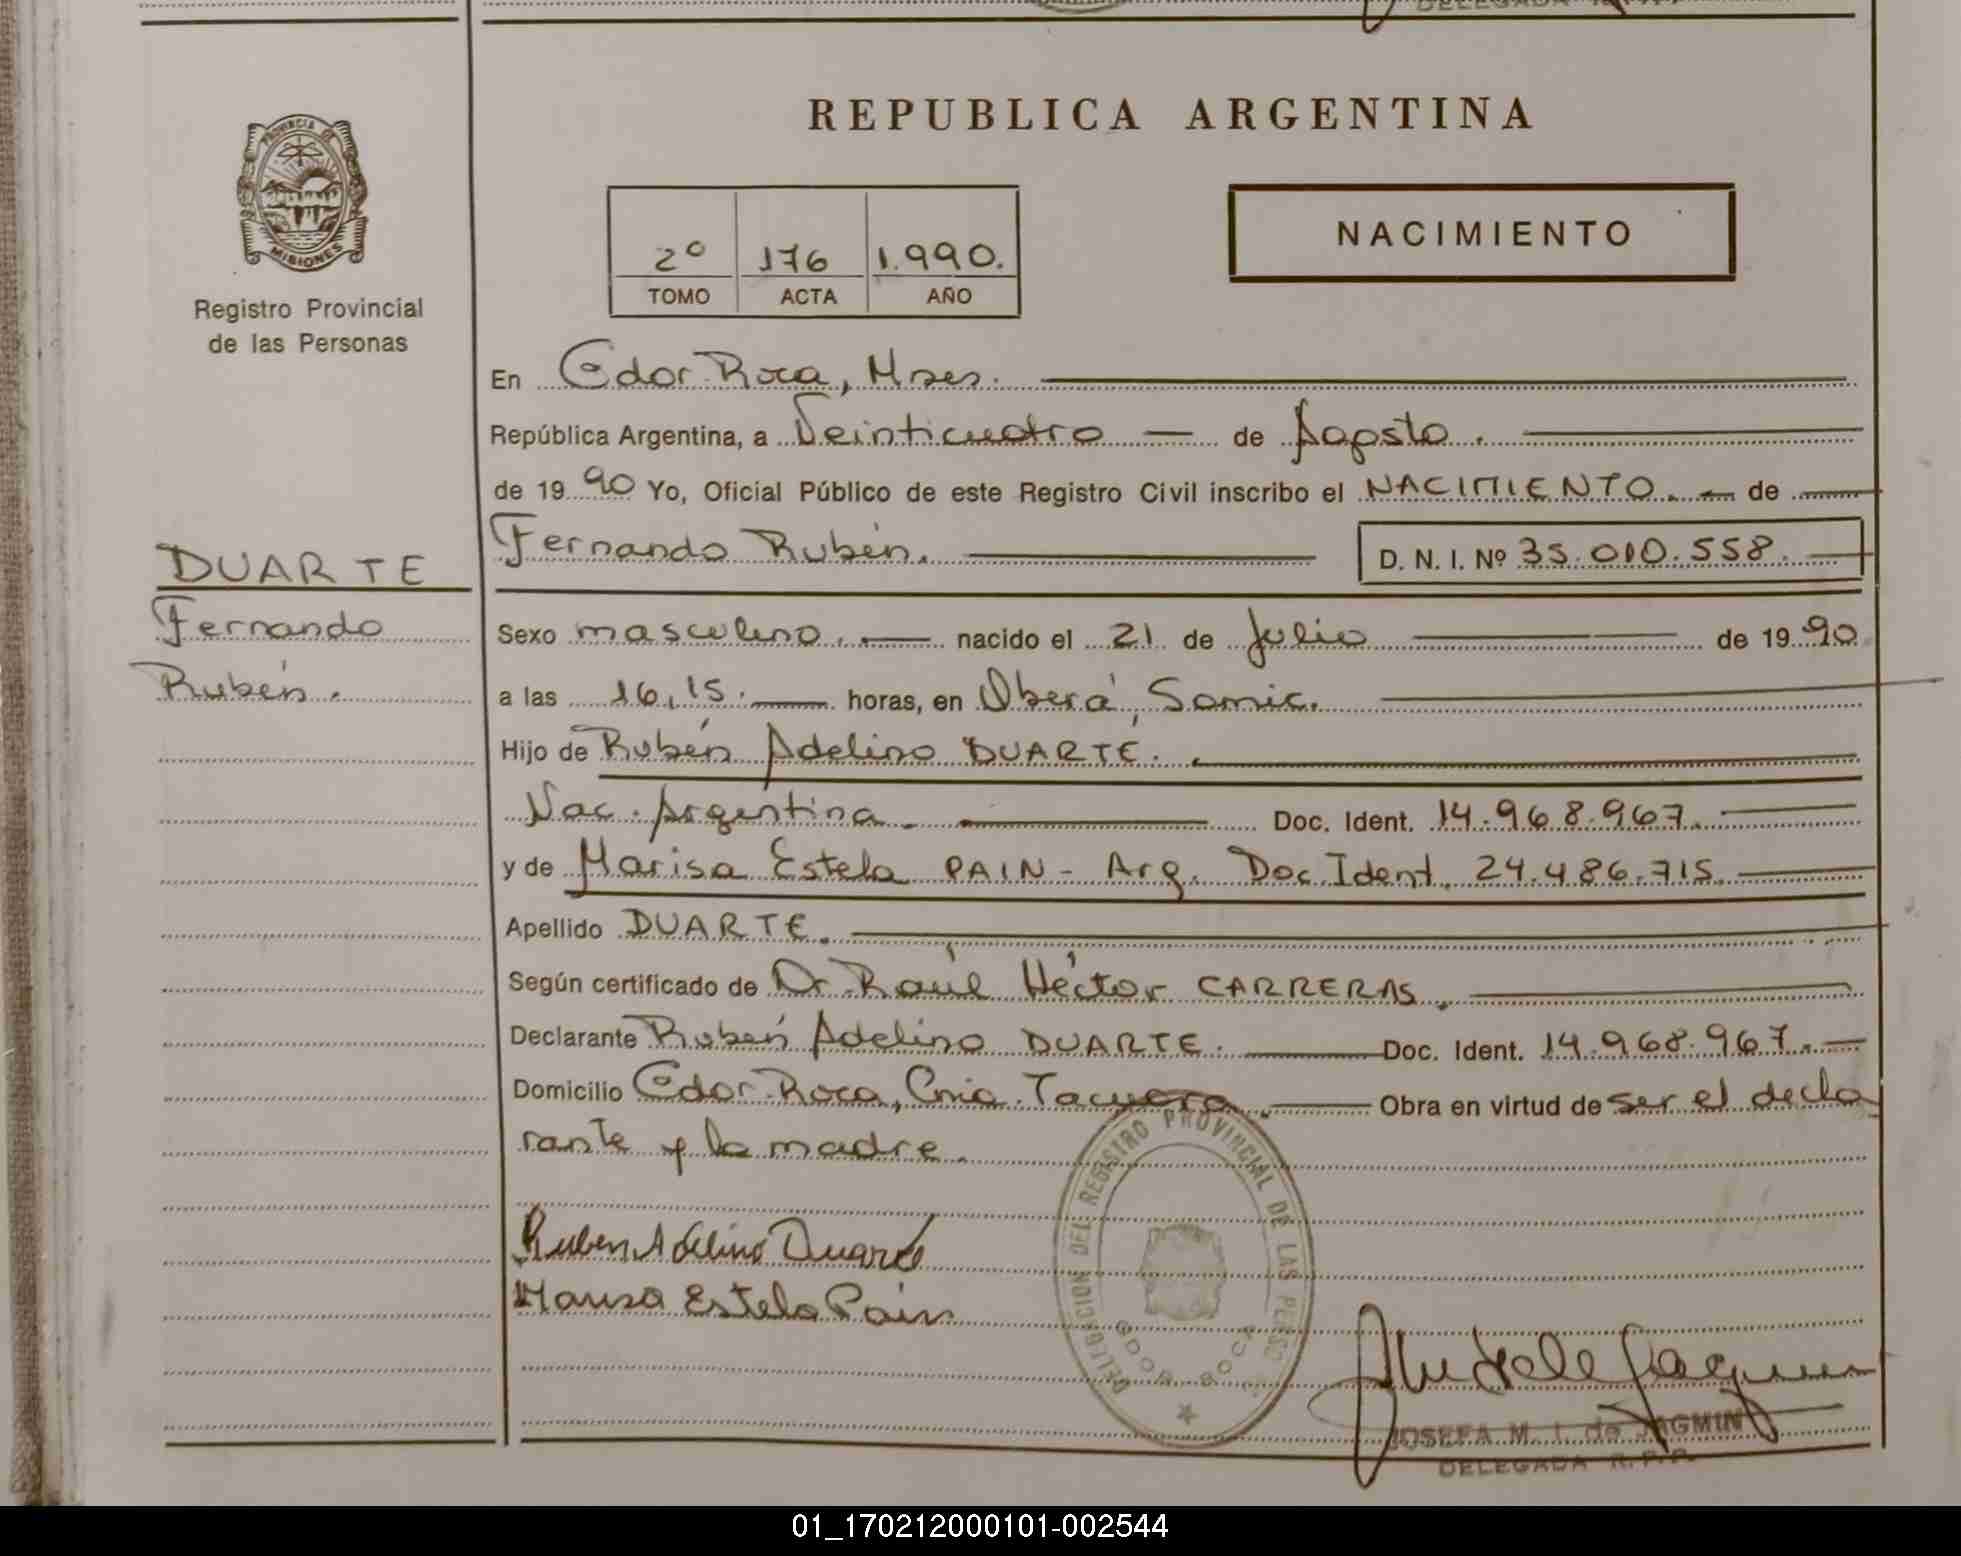 DELEGADA R.P.P.
REPUBLICA ARGENTINA
PROVINCIA DE
MISIONES
Registro Provincial
de las Personas
2º 176 1.990.
TOMO ACTA AÑO
NACIMIENTO
En Gdor. Roca, Mnes.
República Argentina, a Veinticuatro — de Agosto.
de 19 90 Yo, Oficial Público de este Registro Civil inscribo el NACIMIENTO. — de —
DUARTE
Fernando
Rubén.
Fernando Rubén. — D. N. I. Nº 35.010.558. —
Sexo masculino. — nacido el 21 de Julio — de 19 90
a las 16,15. — horas, en Oberá, Samic.
Hijo de Rubén Adelino DUARTE.
Nac. Argentina. — Doc. Ident. 14.968.967.
y de Marisa Estela PAIN - Arg. Doc. Ident. 24.486.715.
Apellido DUARTE.
Según certificado de Dr. Raúl Héctor CARRERAS.
Declarante Rubén Adelino DUARTE. — Doc. Ident. 14.968.967. —
Domicilio Gdor. Roca, Cnia. Tacuara. — Obra en virtud de ser el decla
rante y la madre.
Ruben Adelino Duarte
Marisa Estela Pain
DELEGACION DEL REGISTRO PROVINCIAL DE LAS PERSO
GDOR. ROCA
JOSEFA M. I. de JAGMIN
DELEGADA R.P.P.
01_170212000101-002544